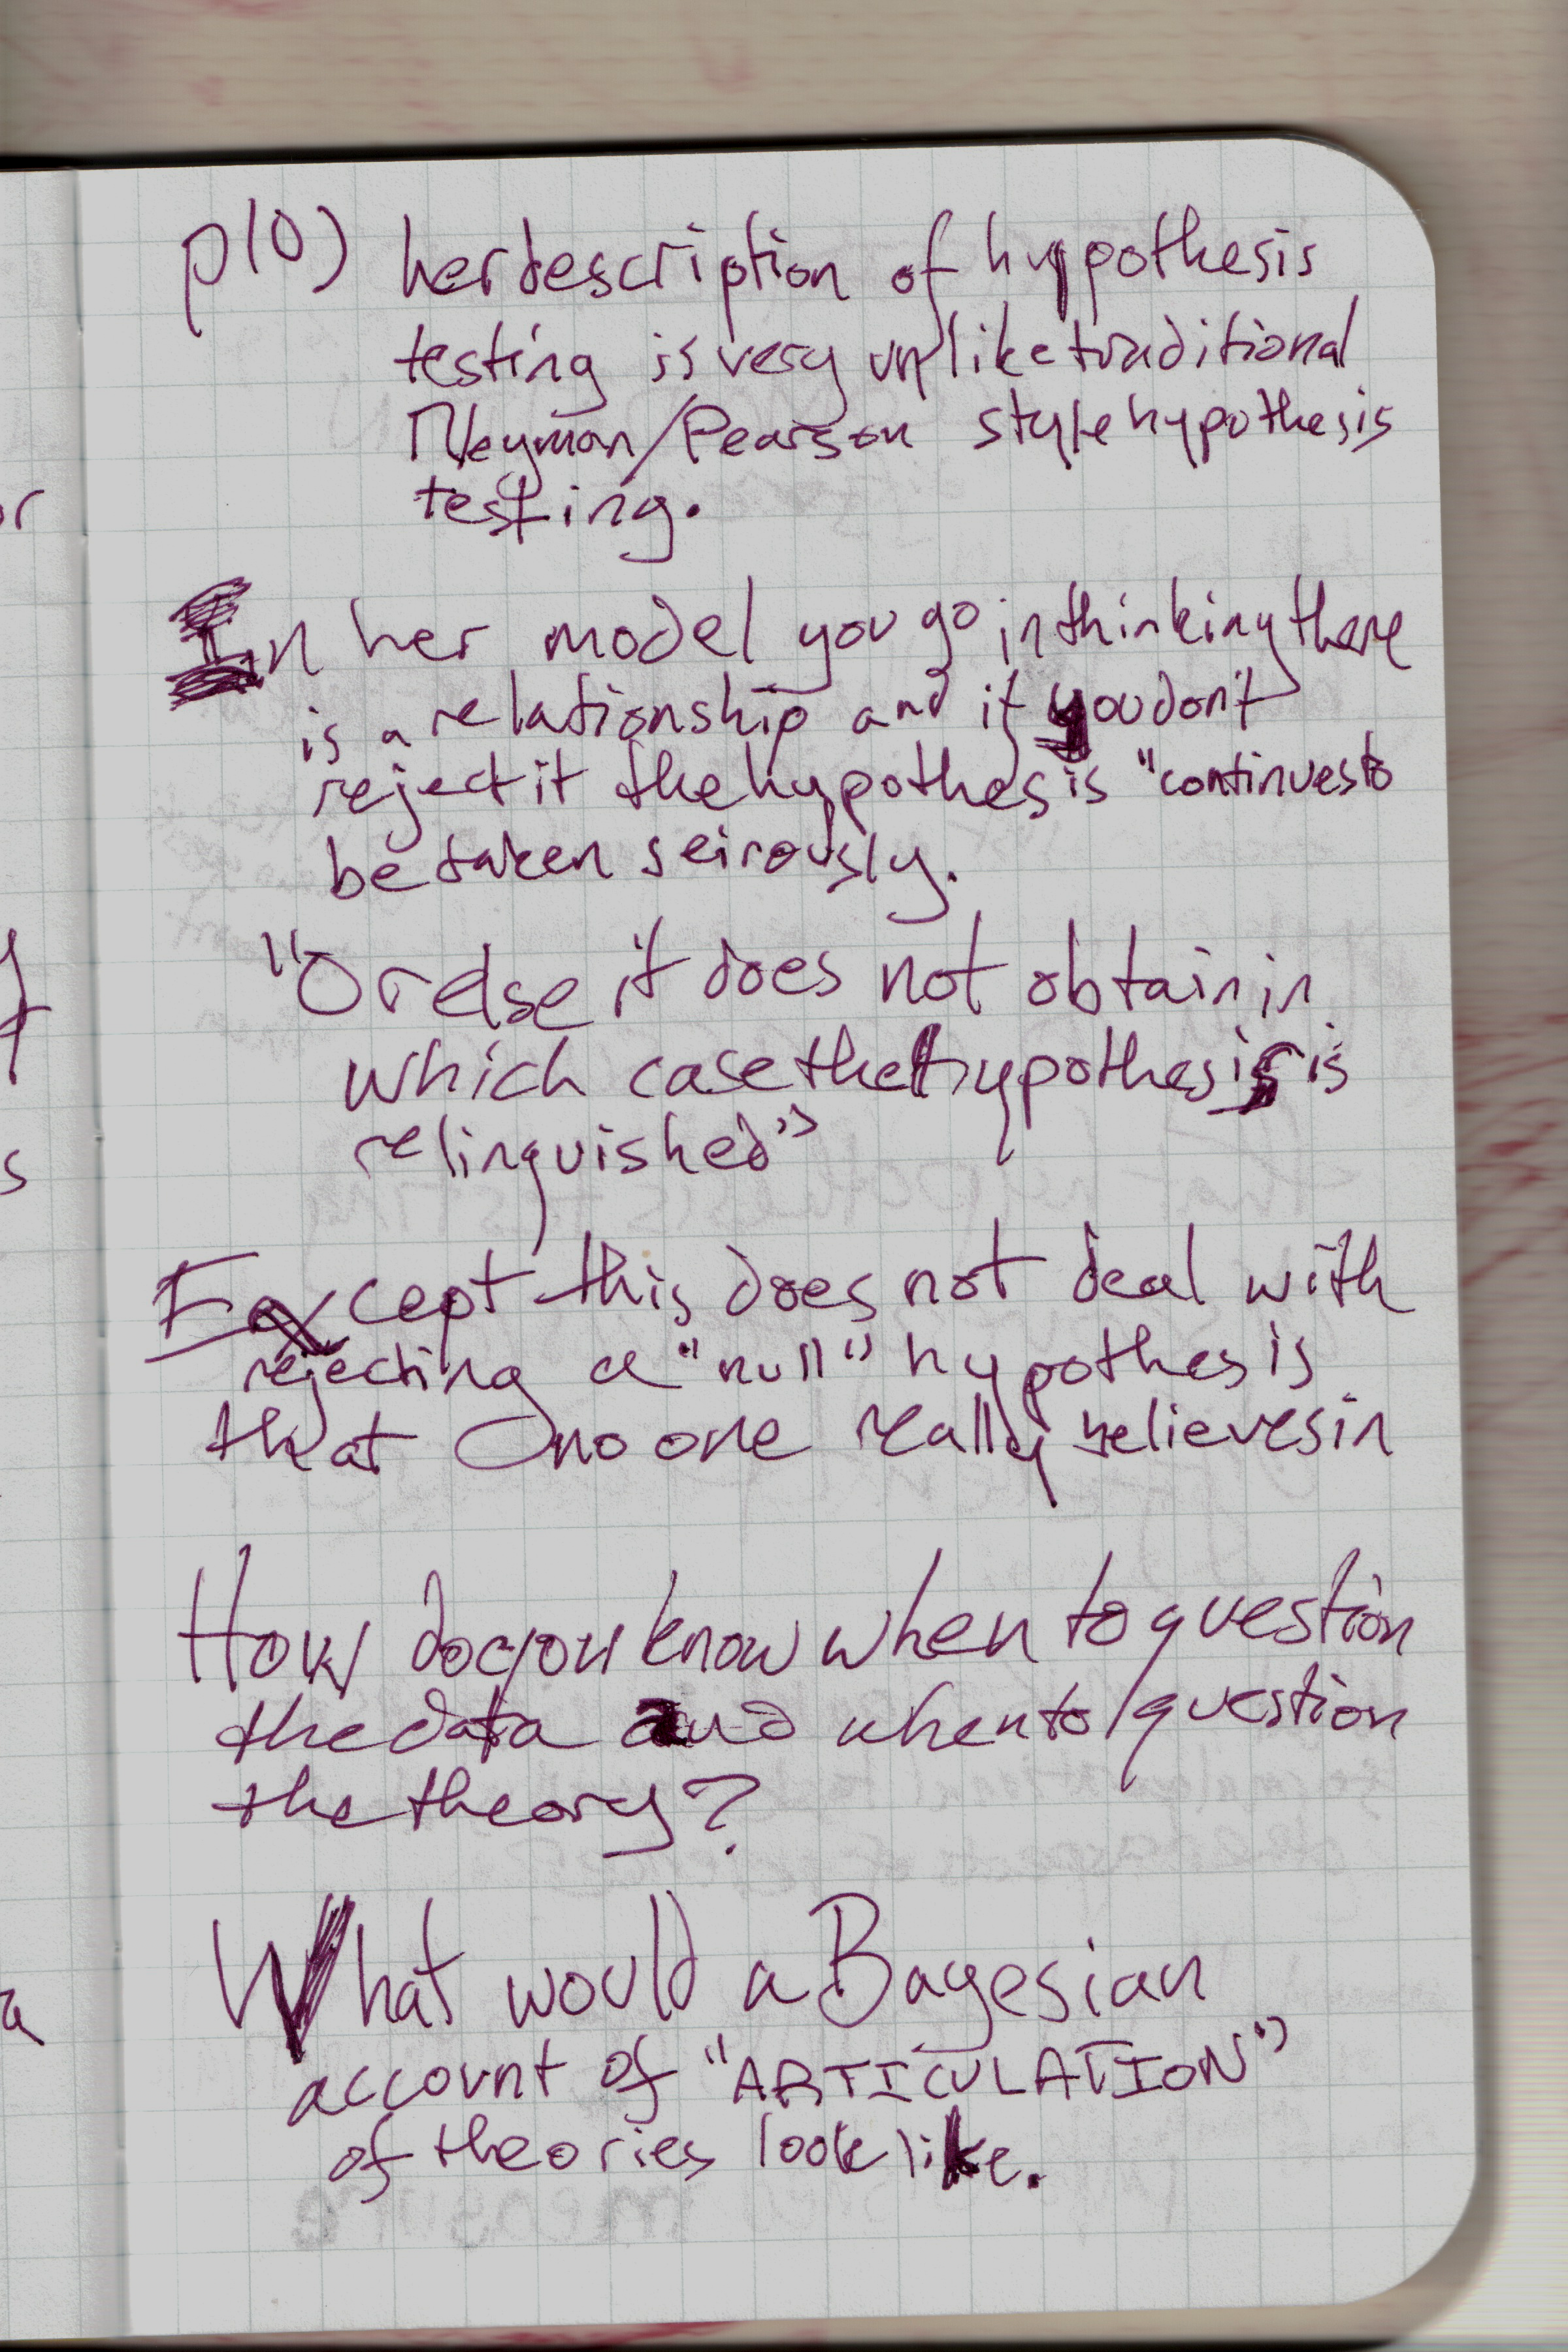 p(0) her description of hypothesis
testing is very unlike traditional
Neyman/Pearson style hypothesis
testing.
In her model you go in thinking there
is a relationship and if you don't
reject it the hypothesis is "continues to
be taken seirously.
"Or else it does not obtain in
which case the hypothesis is
relinquished"
Except this does not deal with
rejecting a "null" hypothesis
that no one really believes in
How do you know when to question
the data and when to question
the theory?
What would a Bayesian
account of "ARTICULATION"
of theories look like.